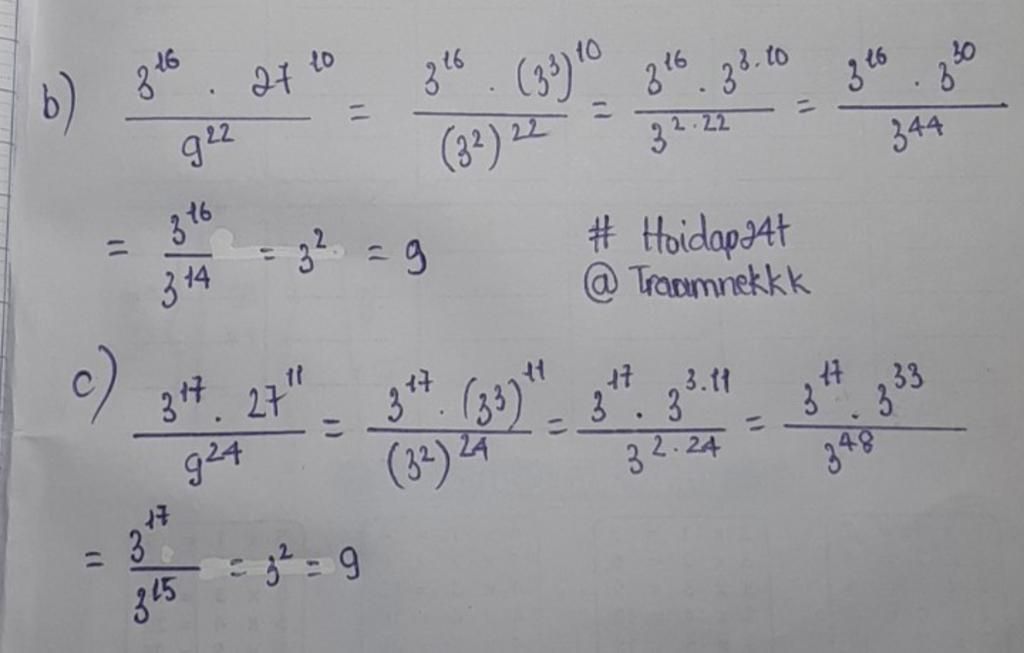 b) \frac{3^{16} . 27^{10}}{9^{22}} = \frac{3^{16} . (3^3)^{10}}{(3^2)^{22}} = \frac{3^{16} . 3^{3.10}}{3^{2.22}} = \frac{3^{16} . 3^{30}}{3^{44}}
= \frac{3^{16}}{3^{14}} = 3^2 = 9
# Hoidap24t
@ Traamnekkk
c) \frac{3^{17} . 27^{11}}{9^{24}} = \frac{3^{17} . (3^3)^{11}}{(3^2)^{24}} = \frac{3^{17} . 3^{3.11}}{3^{2.24}} = \frac{3^{17} . 3^{33}}{3^{48}}
= \frac{3^{17}}{3^{15}} = 3^2 = 9